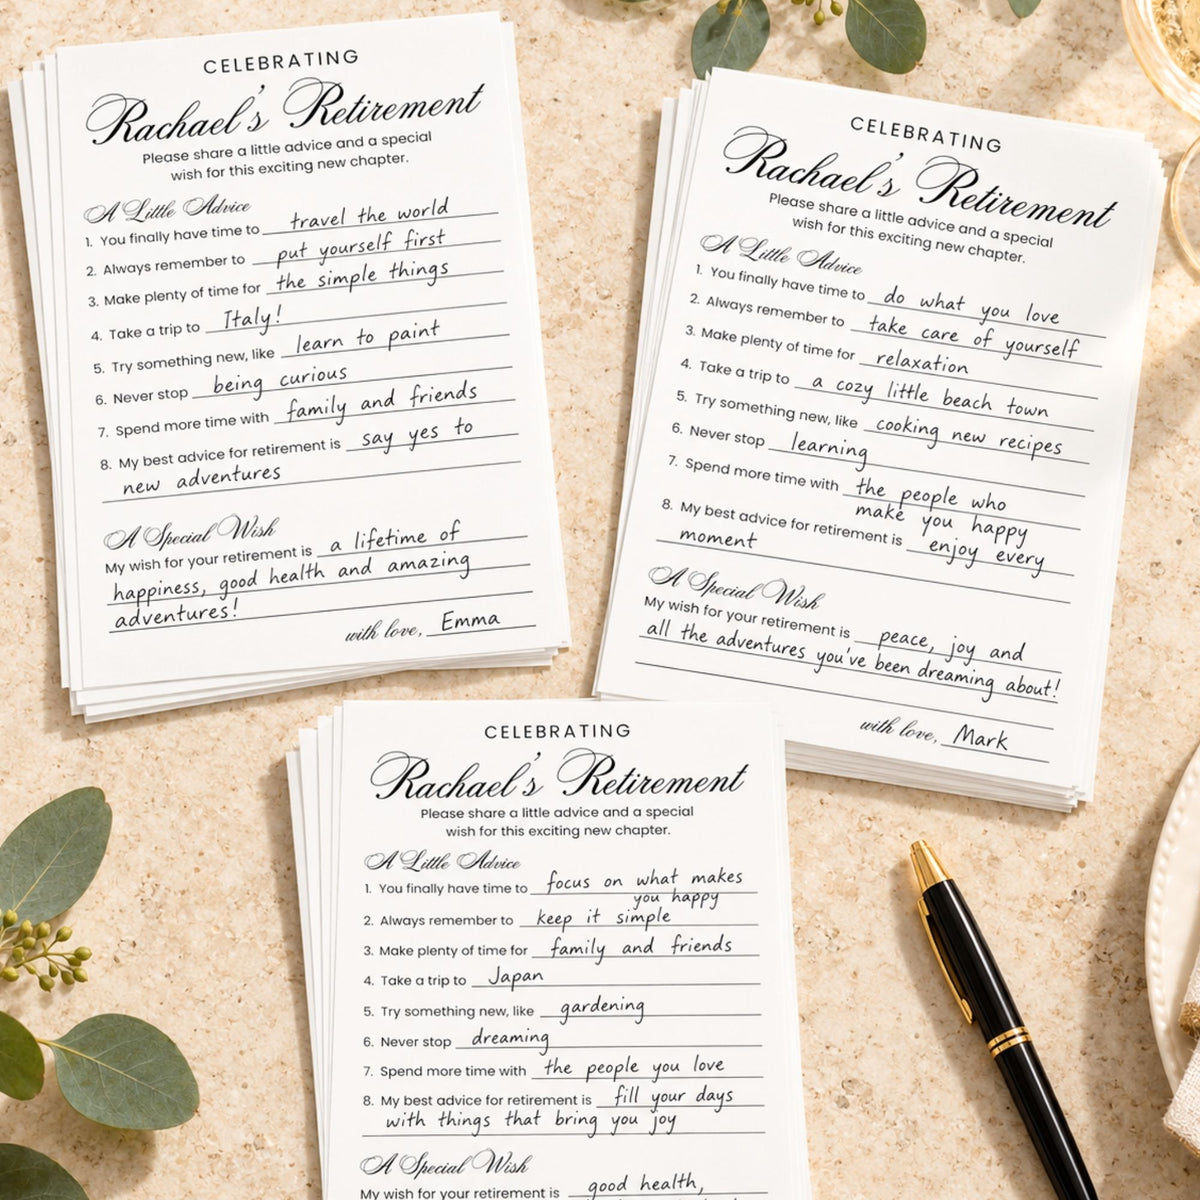 CELEBRATING
Rachael's Retirement
Please share a little advice and a special
wish for this exciting new chapter.
A Little Advice
1. You finally have time to travel the world
2. Always remember to put yourself first
3. Make plenty of time for the simple things
4. Take a trip to Italy!
5. Try something new, like learn to paint
6. Never stop being curious
7. Spend more time with family and friends
8. My best advice for retirement is say yes to
new adventures
A Special Wish
My wish for your retirement is a lifetime of
happiness, good health and amazing
adventures!
with love, Emma
CELEBRATING
Rachael's Retirement
Please share a little advice and a special
wish for this exciting new chapter.
A Little Advice
1. You finally have time to do what you love
2. Always remember to take care of yourself
3. Make plenty of time for relaxation
4. Take a trip to a cozy little beach town
5. Try something new, like cooking new recipes
6. Never stop learning
7. Spend more time with the people who
make you happy
8. My best advice for retirement is enjoy every
moment
A Special Wish
My wish for your retirement is peace, joy and
all the adventures you've been dreaming about!
with love, Mark
CELEBRATING
Rachael's Retirement
Please share a little advice and a special
wish for this exciting new chapter.
A Little Advice
1. You finally have time to focus on what makes
you happy
2. Always remember to keep it simple
3. Make plenty of time for family and friends
4. Take a trip to Japan
5. Try something new, like gardening
6. Never stop dreaming
7. Spend more time with the people you love
8. My best advice for retirement is fill your days
with things that bring you joy
A Special Wish
My wish for your retirement is good health,